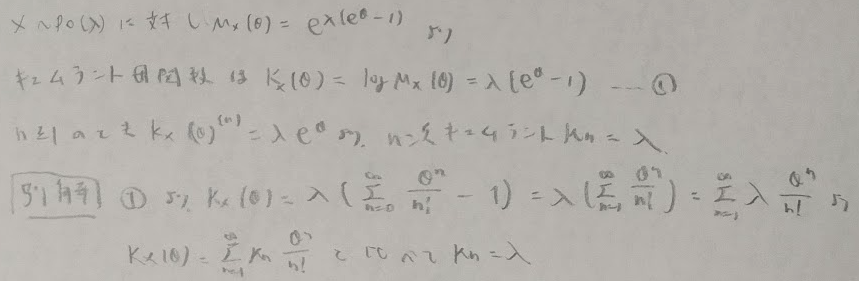 X ~ Po(λ) に対し M_X(θ) = e^{λ(e^θ - 1)} より
キュムラント母関数は K_X(θ) = log M_X(θ) = λ(e^θ - 1) --- ①
n ≥ 1 のとき K_X(θ)^{(n)} = λe^θ より、n次キュムラント K_n = λ
別解 ① より K_X(θ) = λ(Σ_{n=0}^{∞} θ^n/n! - 1) = λ(Σ_{n=1}^{∞} θ^n/n!) = Σ_{n=1}^{∞} λ θ^n/n! より
K_X(θ) = Σ_{n=1}^{∞} K_n θ^n/n! と比べて K_n = λ